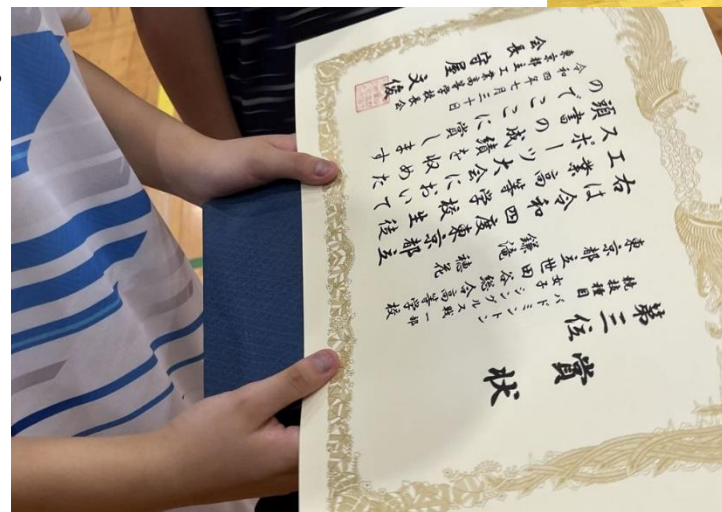 賞状
第三位
競技種目 バドミントン
女子シングルス戦一部
東京都立世田谷総合高等学校
鎌滝穂花
右は令和四年度東京都立
工業高等学校生徒
スポーツ大会において
頭書の成績を収めた
のでここに賞します
令和四年七月三十日
東京都立工業高等学校長会
会長 守屋文俊